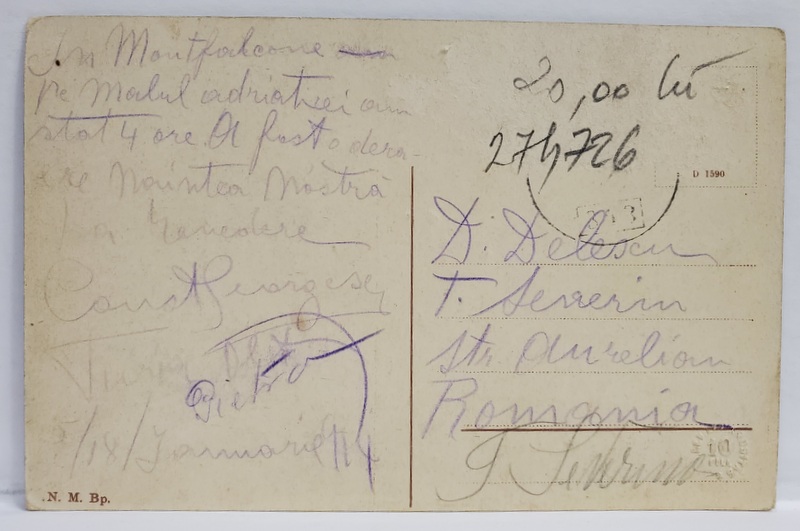 In Montfalcone
pe malul adriaticei am
stat 4 ore. A fost o dera-
are naintea nostră
La revedere
Const Georgescu
Pietro
5/18/Ianuarie 914
.N. M. Bp.
20,00 lei
274726
D 1590
D. Delescu
T. Severin
Str. Aurelian
Romania
T. Severino